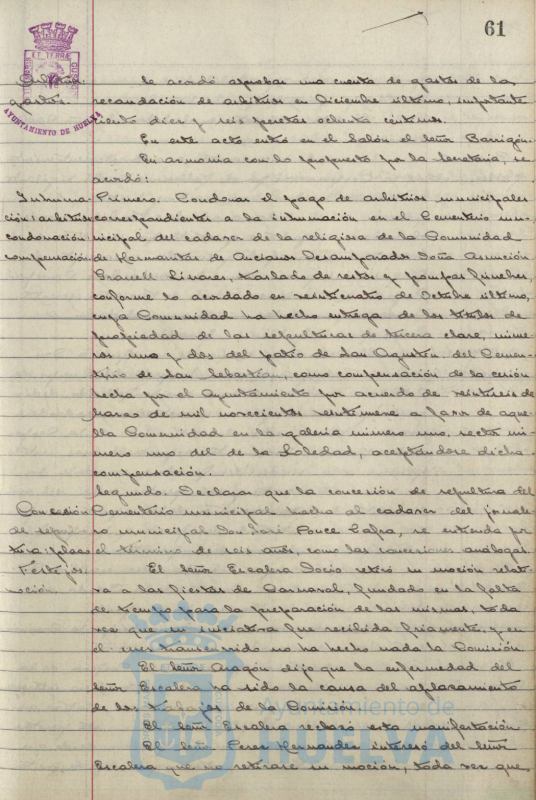 61
Arbitrios. Se acordó aprobar una cuenta de gastos de la
gastos. recaudación de arbitrios en Diciembre último, importante
ciento diez y seis pesetas ochenta céntimos.
AYUNTAMIENTO DE HUELVA
En este acto entró en el Salón el Señor Barrigón.
En armonía con lo propuesto por la Secretaría, se
acordó:
Inhuma- Primero. Condonar el pago de arbitrios municipales
ción: arbitrios correspondientes a la inhumación en el Cementerio mu-
condonación nicipal del cadáver de la religiosa de la Comunidad
compensación de Hermanitas de Ancianos Desamparados Doña Asunción
Granell Linares, traslado de restos y pompas fúnebres,
conforme lo acordado en veinticuatro de Octubre último,
cuya Comunidad ha hecho entrega de los títulos de
propiedad de las sepulturas de tercera clase, núme-
ros uno y dos del patio de San Agustín del Cemen-
terio de San Sebastián, como compensación de la cesión
hecha por el Ayuntamiento por acuerdo de veintiseis de
Marzo de mil novecientos veintinueve a favor de aque-
lla Comunidad en la galería número uno, sector nú-
mero uno del de la Soledad, aceptándose dicha
compensación.
Segundo. Declarar que la concesión de sepultura del
Concesión Cementerio municipal hecha al cadáver del jornale-
de sepul- ro municipal Don José Ponce Lafra, se entienda por
tura: plazo el término de seis años, como las concesiones análogas.
Festejos. El Señor Escalera Docio retiró su moción relati-
moción. va a las fiestas de Carnaval, fundado en la falta
de tiempo para la preparación de las mismas, toda
vez que su iniciativa fue recibida friamente, y en
el mes transcurrido no ha hecho nada la Comisión.
El Señor Aragón dijo que la enfermedad del
Señor Escalera ha sido la causa del aplazamiento
de los trabajos de la Comisión.
El Señor Escalera rechazó esta manifestación
El Señor Perez Hernandez interesó del Señor
Escalera que no retirase su moción, toda vez que
Ayuntamiento de
HUELVA